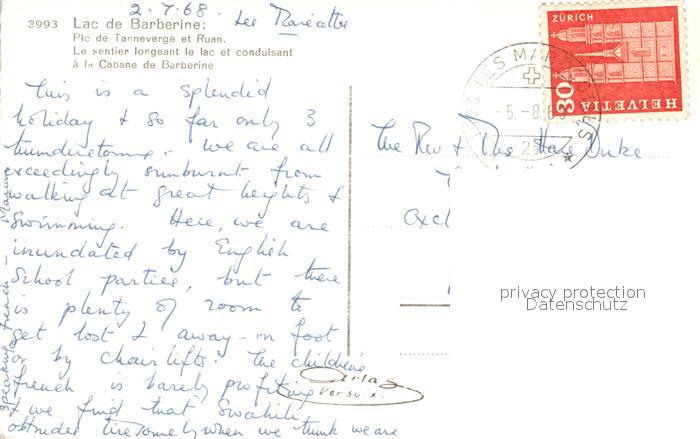 2.7.68. Les Marécottes
3993 Lac de Barberine:
Pic de Tanneverge et Ruan.
Le sentier longeant le lac et conduisant
à la Cabane de Barberine
This is a splendid
holiday & so far only 3
thunderstorms. We are all
exceedingly sunburnt from
walking at great heights &
swimming. Here, we are
inundated by English
School parties, but there
is plenty of room to
get lost & away – on foot
or by chairlifts. The children's
french is barely profiting
& we find that Swahili
obtrudes tiresomely when we think we are
speaking french –
The Rev & Mrs Hare Duke
ZÜRICH
30
HELVETIA
LES MAR
-5.-8.6
Artas
Versoix
privacy protection
Datenschutz